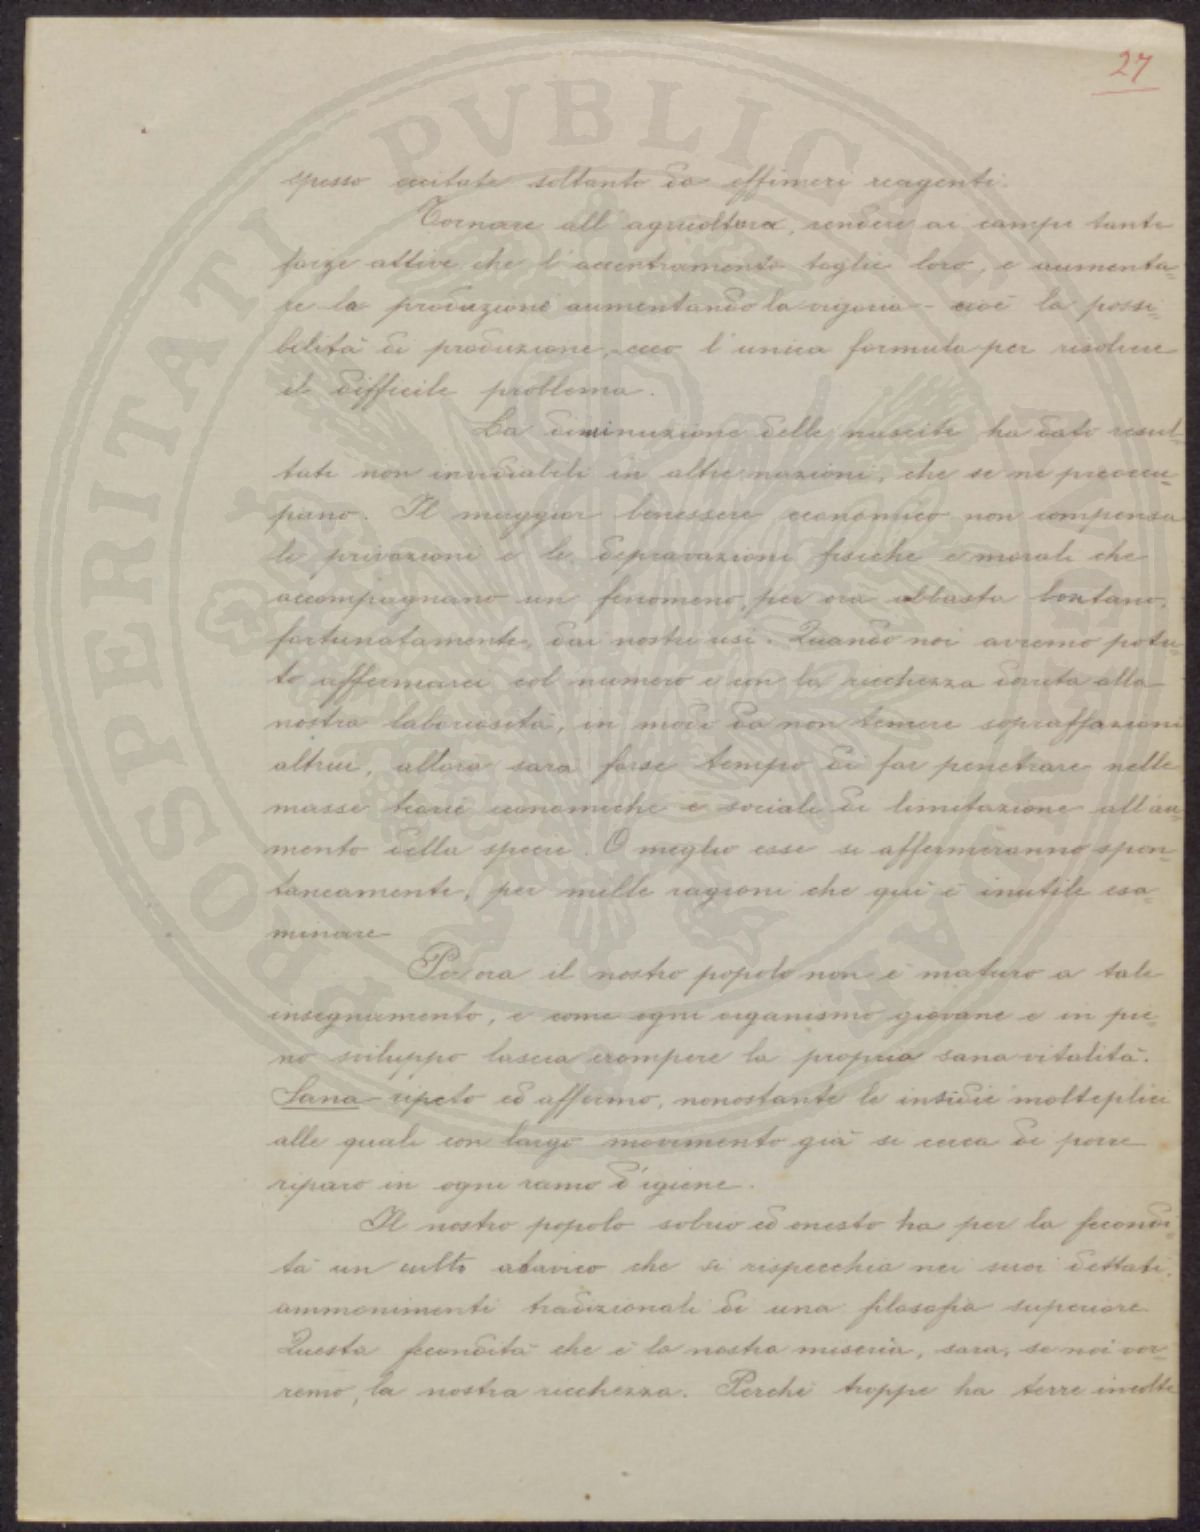 27
spesso eccitate soltanto da effimeri reagenti.
Tornare all'agricoltura, rendere ai campi tante
forze attive che l'accentramento toglie loro, e aumenta=
re la produzione aumentando la vigoria - cioè la possi=
bilità di produzione, ecco l'unica formula per risolvere
il difficile problema.
La diminuzione delle nascite ha dato resul=
tati non invidiabili in altre nazioni, che se ne preoccu=
pano. Il maggior benessere economico non compensa
le privazioni e le depravazioni fisiche e morali che
accompagnano un fenomeno, per ora abbasta lontano,
fortunatamente, dai nostri usi. Quando noi avremo potu=
to affermarci col numero e con la ricchezza dovuta alla
nostra laboriosità, in modo da non temere sopraffazioni
altrui, allora sarà forse tempo di far penetrare nelle
masse teorie economiche e sociali di limitazione all'au=
mento della specie. O meglio esse si affermeranno spon=
taneamente, per mille ragioni che qui è inutile esa=
minare
Per ora il nostro popolo non è maturo a tale
insegnamento, e come ogni organismo giovane e in pie=
no sviluppo lascia erompere la propria sana vitalità.
Sana ripeto ed affermo, nonostante le insidie molteplici
alle quali con largo movimento già si cerca di porre
riparo in ogni ramo d'igiene.
Il nostro popolo sobrio ed onesto ha per la fecondi=
tà un culto atavico che si rispecchia nei suoi dettati,
ammonimenti tradizionali di una filosofia superiore.
Questa fecondità che è la nostra miseria, sarà, se noi vor=
remo, la nostra ricchezza. Perchè troppe ha terre incolte
PROSPERITATI PVBLICAE